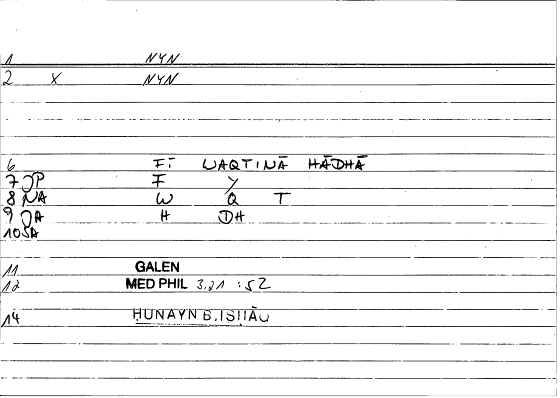 1 NYN
2 X NYN
6 FĪ WAQTINĀ HĀDHĀ
7 JP F Y
8 NA W Q T
9 JA H DH
10 SA
11 GALEN
12 MED PHIL 3.21 :52
14 HUNAYN B. ISHĀQ